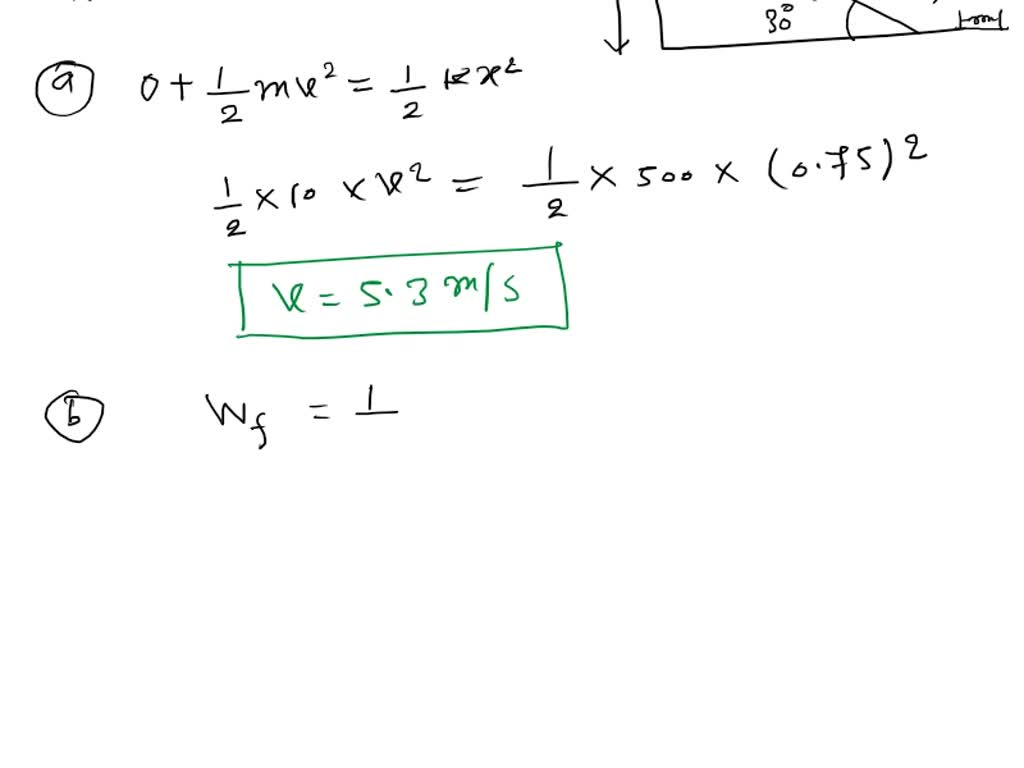 30°
(a) 0 + 1/2 mv² = 1/2 kx²
1/2 × 10 × v² = 1/2 × 500 × (0.75)²
v = 5.3 m/s
(b) W_f = 1